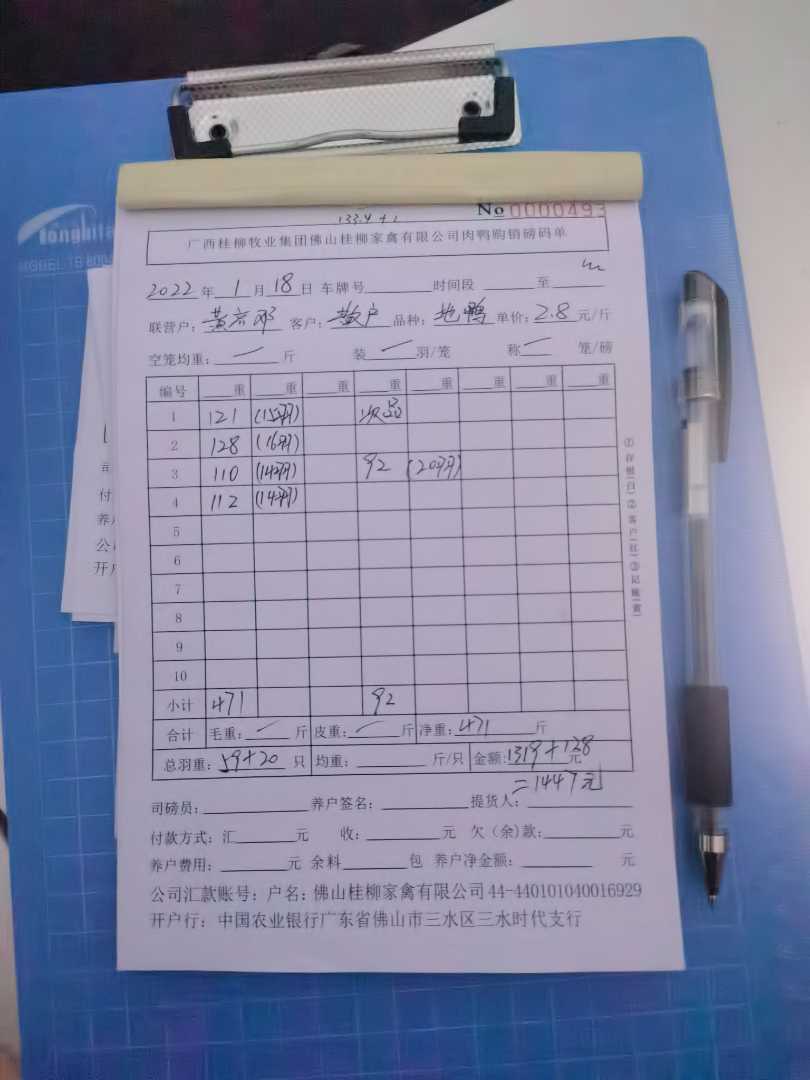 133.4+2
No 0000493
广西桂柳牧业集团佛山桂柳家禽有限公司肉鸭购销磅码单
2022年1月18日 车牌号 时间段 至
联营户: 客户:散户 品种:地鸭 单价:2.8元/斤
空笼均重: 一 斤 装 一 羽/笼 称 一 笼/磅
编号 重 重 重 重 重 重 重 重
1 121 (15羽) 次品
2 128 (16羽)
3 110 (14羽) 92 (20羽)
4 112 (14羽)
5
6
7
8
9
10
小计 471 92
合计 毛重: 一 斤 皮重: 一 斤 净重:471斤
总羽重:59+20只 均重: 斤/只 金额:1319+128元
=1447元
司磅员: 养户签名: 提货人:
付款方式:汇 元 收: 元 欠(余)款: 元
养户费用: 元 余料 包 养户净金额: 元
公司汇款账号:户名:佛山桂柳家禽有限公司44-440101040016929
开户行:中国农业银行广东省佛山市三水区三水时代支行
①存根(白)②客户(红)③记账(黄)